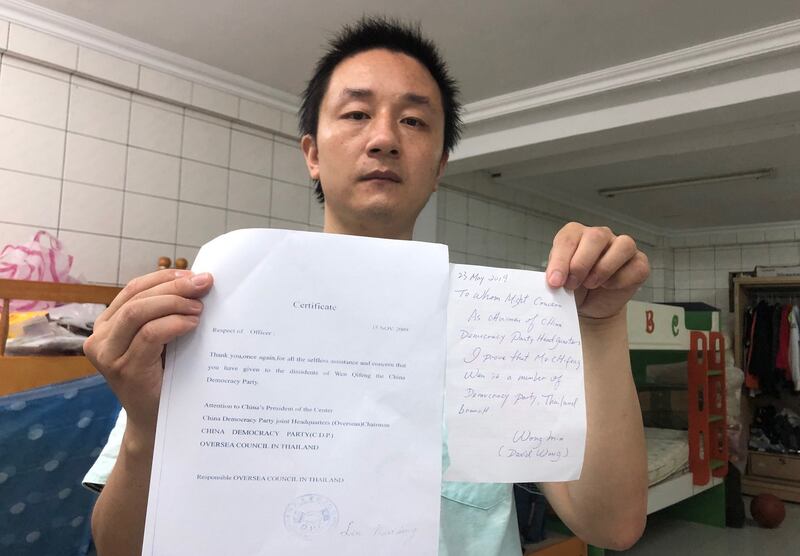 Certificate
15 NOV. 2009
Respect of Officer :
Thank you,once again,for all the selfless assistance and concern that
you have given to the dissidents of Wen Qifeng the China
Democracy Party.
Attention to China's President of the Center
China Democracy Party joint Headquarters (Overseas)Chairman
CHINA DEMOCRACY PARTY(C.D.P.)
OVERSEAS COUNCIL IN THAILAND
Responsible OVERSEAS COUNCIL IN THAILAND
23 May 2019
To Whom Might Concern
As chairman of China
Democracy Party Headquarters
I prove that Mr Chifeng
Wen is a number of
Democracy party, Thailand
branch
Wang min
(David Wang)
B C